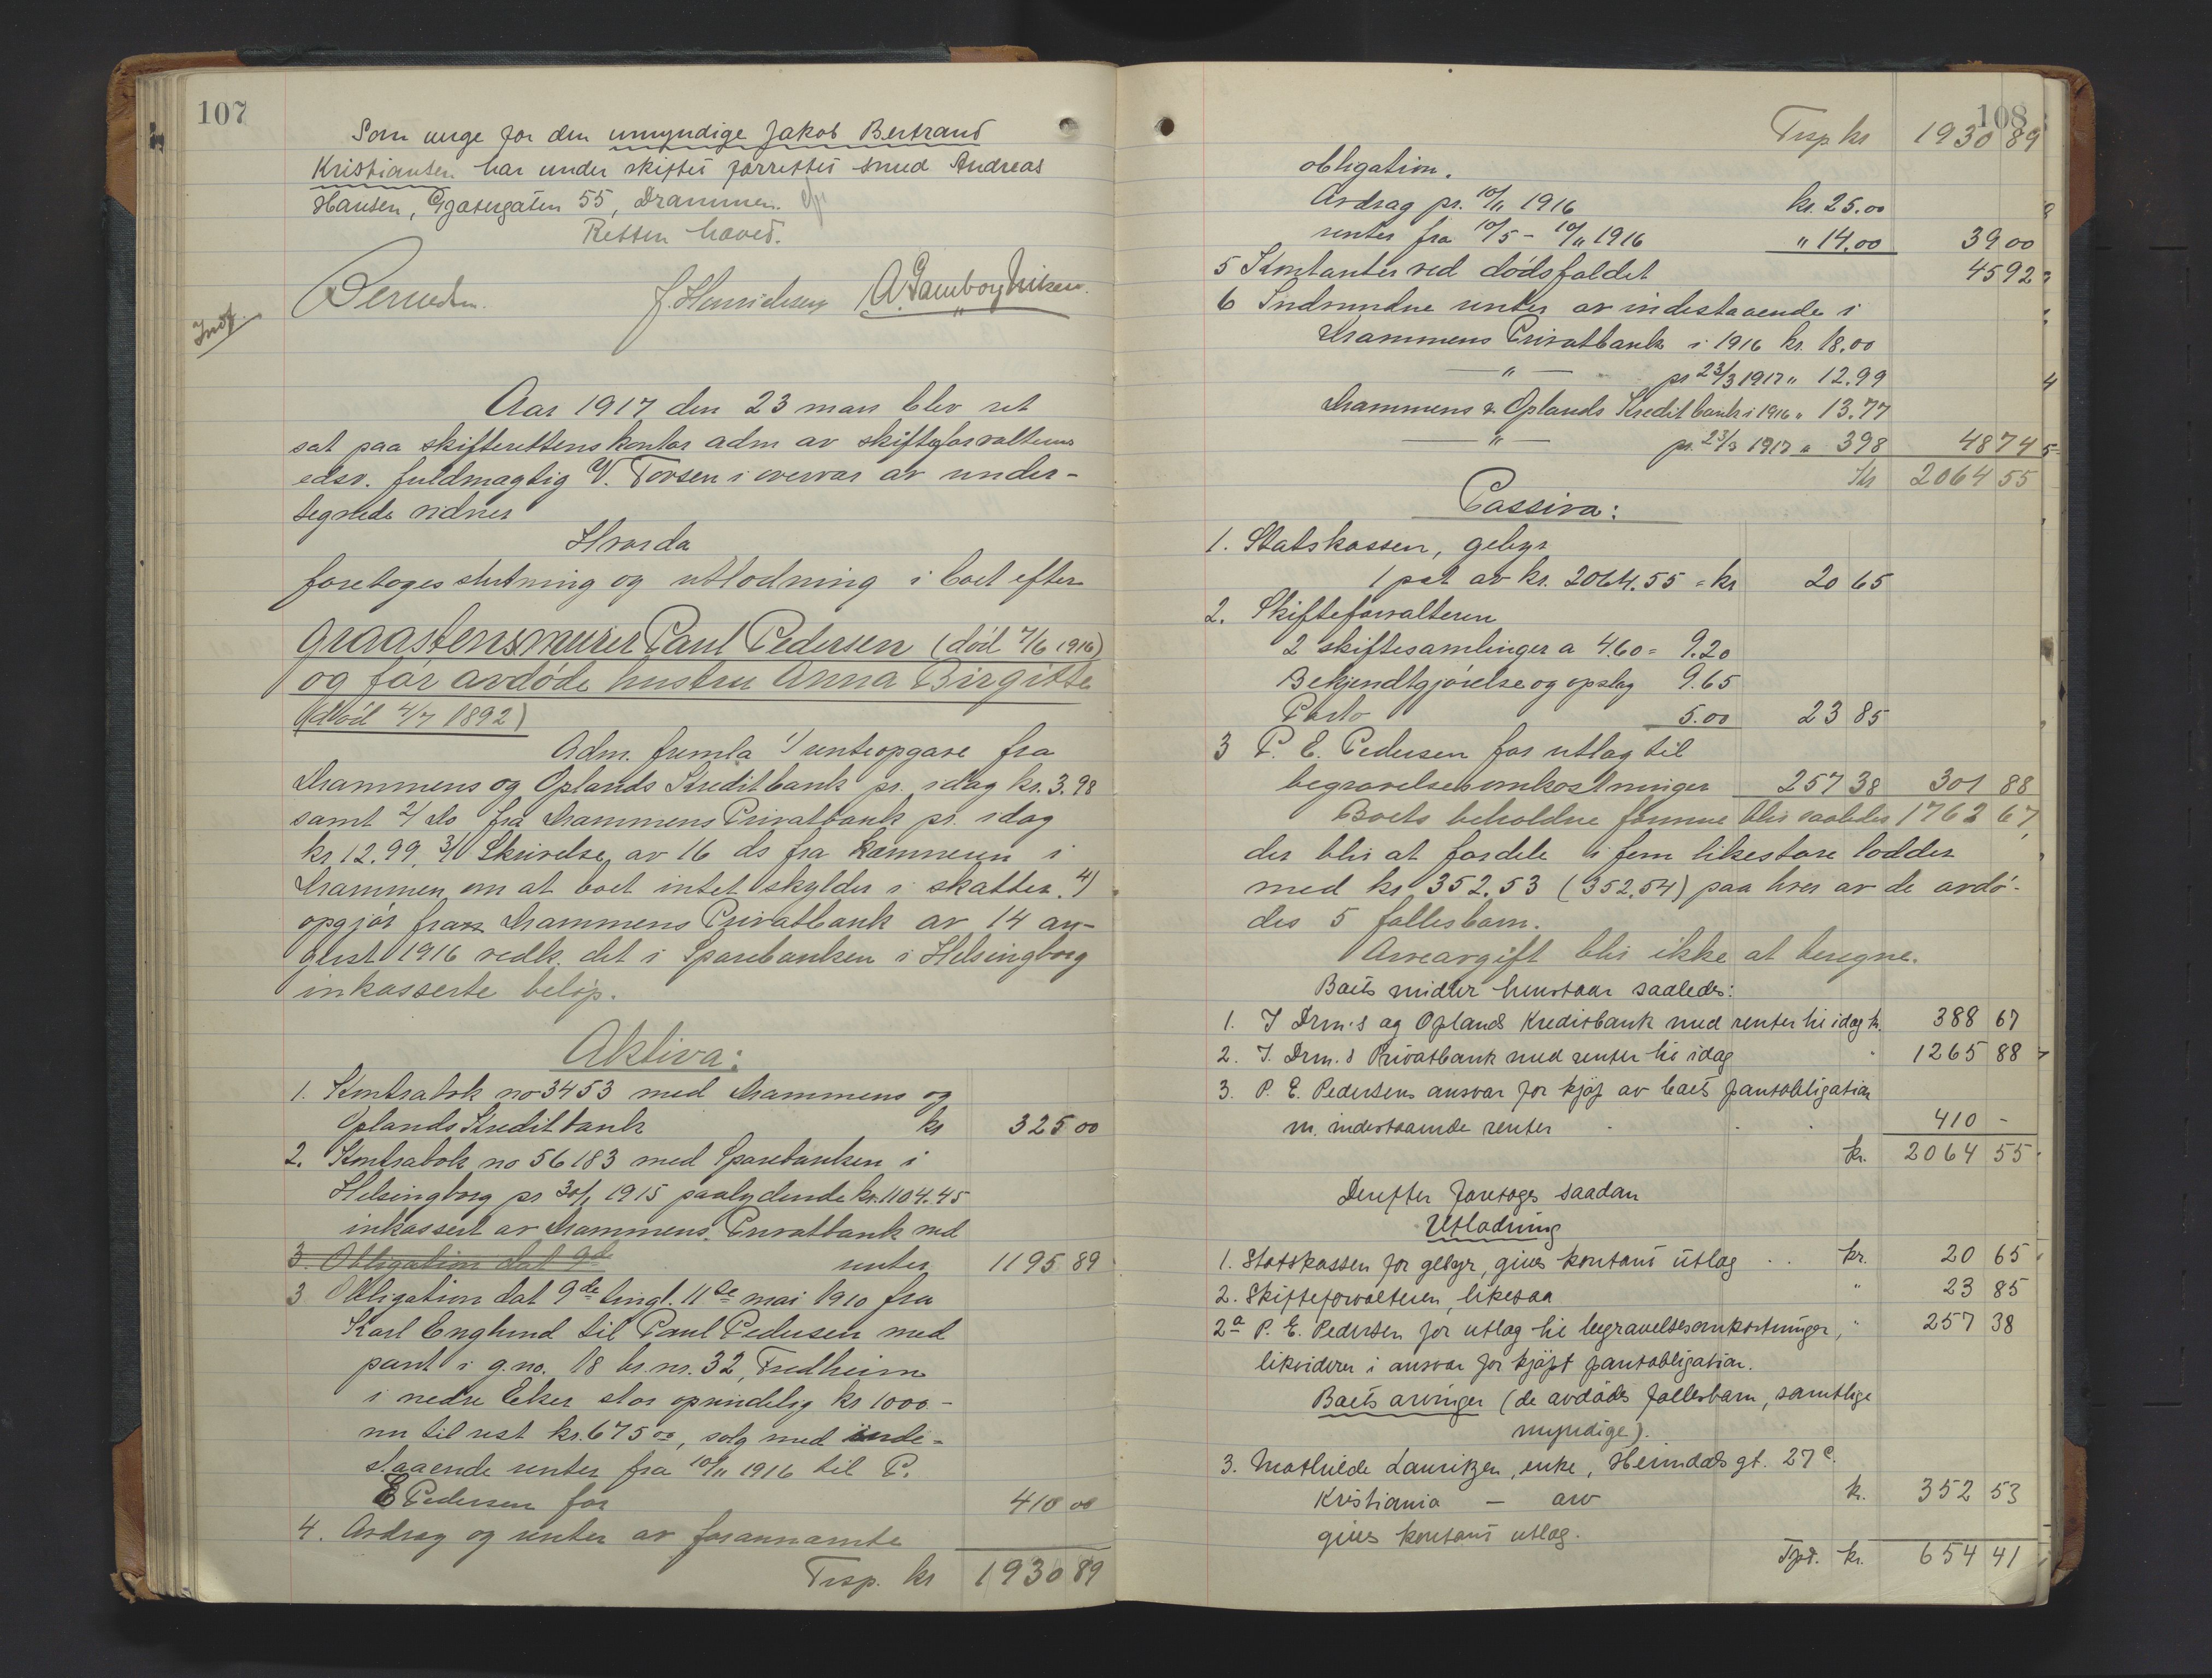 107
Som verge for den umyndige Jakob Bertrand
Kristiansen har under skiftet forrettet smed Andreas
Hansen, Gjetergaten 55, Drammen.
Retten hævet.
J. Henrichsen
Indf.
Aar 1917 den 23 mars blev ret
sat paa skifterettens kontor adm av skifteforvalterens
edsv. fuldmægtig V. Torsen i overvær av under-
tegnede vidner
Hvorda
foretoges slutning og utlodning i boet efter
graastensmurer Paul Pedersen (död 7/6 1916)
og før avdøde hustru Anna Birgitte
(død 4/7 1892)
Adm. fremla 1/ renteopgave fra
Drammens og Oplands Kreditbank pr. idag kr. 3.98
samt 2/ do fra Drammens Privatbank pr. idag
kr 12.99, 3/ Skrivelse av 16 ds fra kæmneren i
Drammen om at boet intet skylder i skatter. 4/
opgjør fra Drammens Privatbank av 14 au-
gust 1916 vedk. det i Sparebanken i Helsingborg
inkasserte beløp.
Aktiva:
1. Kontrabok no 3453 med Drammens og
Oplands Kreditbank kr 325 00
2. Kontrabok no 56183 med Sparebanken i
Helsingborg pr 30/1 1915 paalydende kr. 1104.45
inkassert av Drammens Privatbank med
3. Obligation dat 9de renter 1195 89
3 Obligation dat 9de tingl. 11te mai 1910 fra
Karl Englund til Paul Pedersen med
pant i g.no. 18 br.nr. 32, Fredheim
i nedre Eker stor oprindelig kr 1000.-
nu til rest kr. 675 00, solg med inde-
staaende renter fra 10/11 1916 til P.
E Pedersen for 410 00
4. Avdrag og renter av forannævnte
Trsp. kr 1930 89
108
Trsp kr 1930 89
obligation.
Avdrag pr. 10/11 1916 kr. 25.00
renter fra 10/5 - 10/11 1916 " 14.00 39 00
5 Kontanter ved dødsfaldet 45 92
6 Indvundne renter av indestaaende i
Drammens Privatbank i 1916 kr. 18.00
— " — pr 23/3 1917 " 12.99
Drammens & Oplands Kreditbank i 1916 " 13.77
— " — pr. 23/3 1917 " 3 98 48 74
Kr 2064 55
Passiva:
1. Statskassen, gebyr
1 pct av kr. 2064.55 = kr 20 65
2. Skifteforvalteren
2 skiftesamlinger a 4.60 = 9.20
Bekjendtgjørelse og opslag 9.65
Porto 5.00 23 85
3 P. E. Pedersen for utlæg til
begravelsesomkostninger 257 38 301 88
Boets beholdne formue blir saaledes 1762 67,
der blir at fordele i fem likestore lodder
med kr. 352.53 (352.54) paa hver av de avdø-
des 5 fællesbarn.
Arveavgift blir ikke at beregne.
Boets midler henstaar saaledes:
1. I Drm.s og Oplands Kreditbank med renter til idag kr. 388 67
2. I. Drm.s Privatbank med renter til idag " 1265 88
3. P. E. Pedersens ansvar for kjøp av boets pantobligation
m. indestaaende renter 410 -
kr. 2064 55
Derefter foretoges saadan
Utlodning
1. Statskassen for gebyr, gives kontant utlæg kr. 20 65
2. Skifteforvalteren, likesaa " 23 85
2a P. E. Pedersen for utlæg til begravelsesomkostninger, " 257 38
likvideres i ansvar for kjøpt pantobligation.
Boets arvinger (de avdødes fællesbarn, samtlige
myndige).
3. Mathilde Lauritzen, enke, Heimdals gt. 27c.
Kristiania — arv kr. 352 53
gives kontant utlæg.
Trpt. kr. 654 41